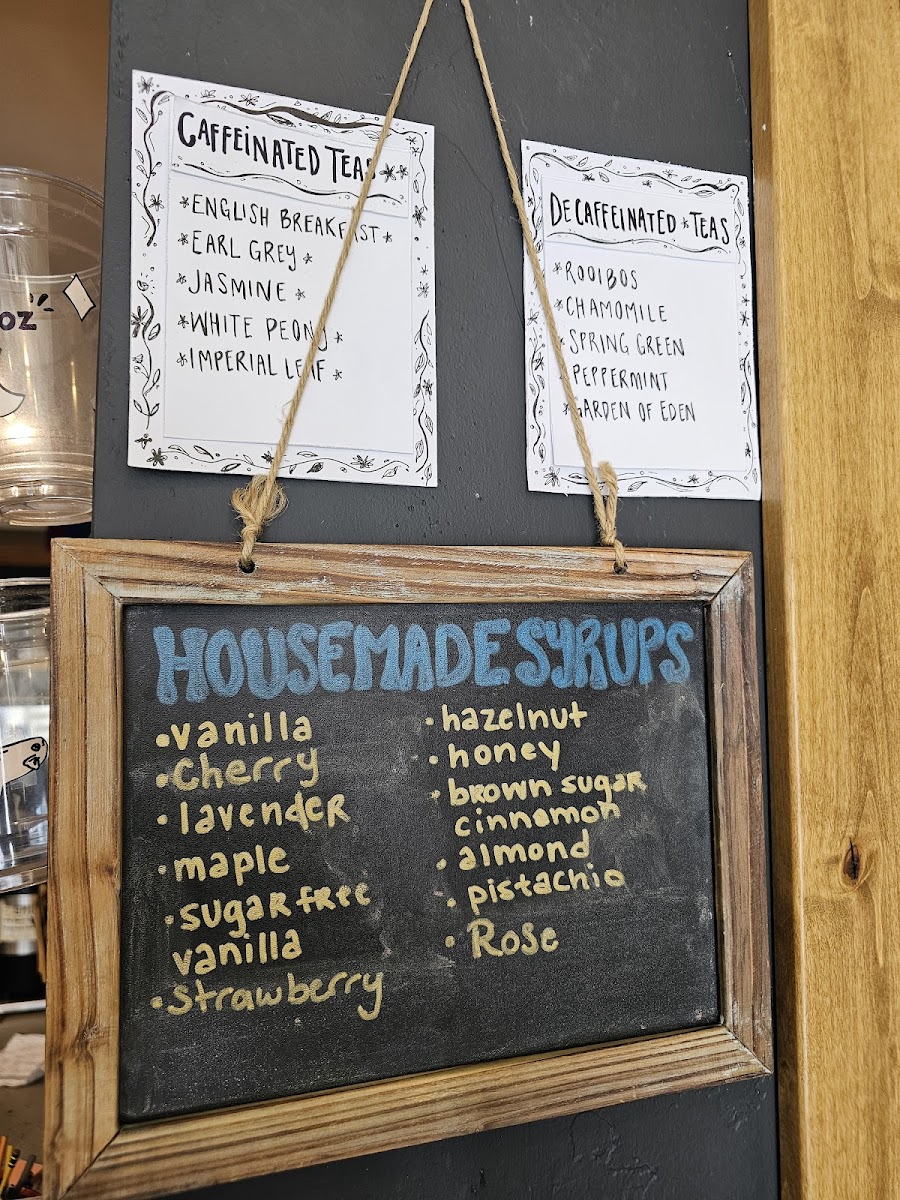 CAFFEINATED TEAS
*ENGLISH BREAKFAST*
*EARL GREY*
*JASMINE*
*WHITE PEONY*
*IMPERIAL LEAF*
DECAFFEINATED*TEAS
*ROOIBOS
*CHAMOMILE
*SPRING GREEN
*PEPPERMINT
*GARDEN OF EDEN
oz
HOUSEMADE SYRUPS
•vanilla
•Cherry
•lavender
•maple
•sugar free
vanilla
•Strawberry
•hazelnut
•honey
•brown sugar
cinnamon
•almond
•pistachio
•Rose